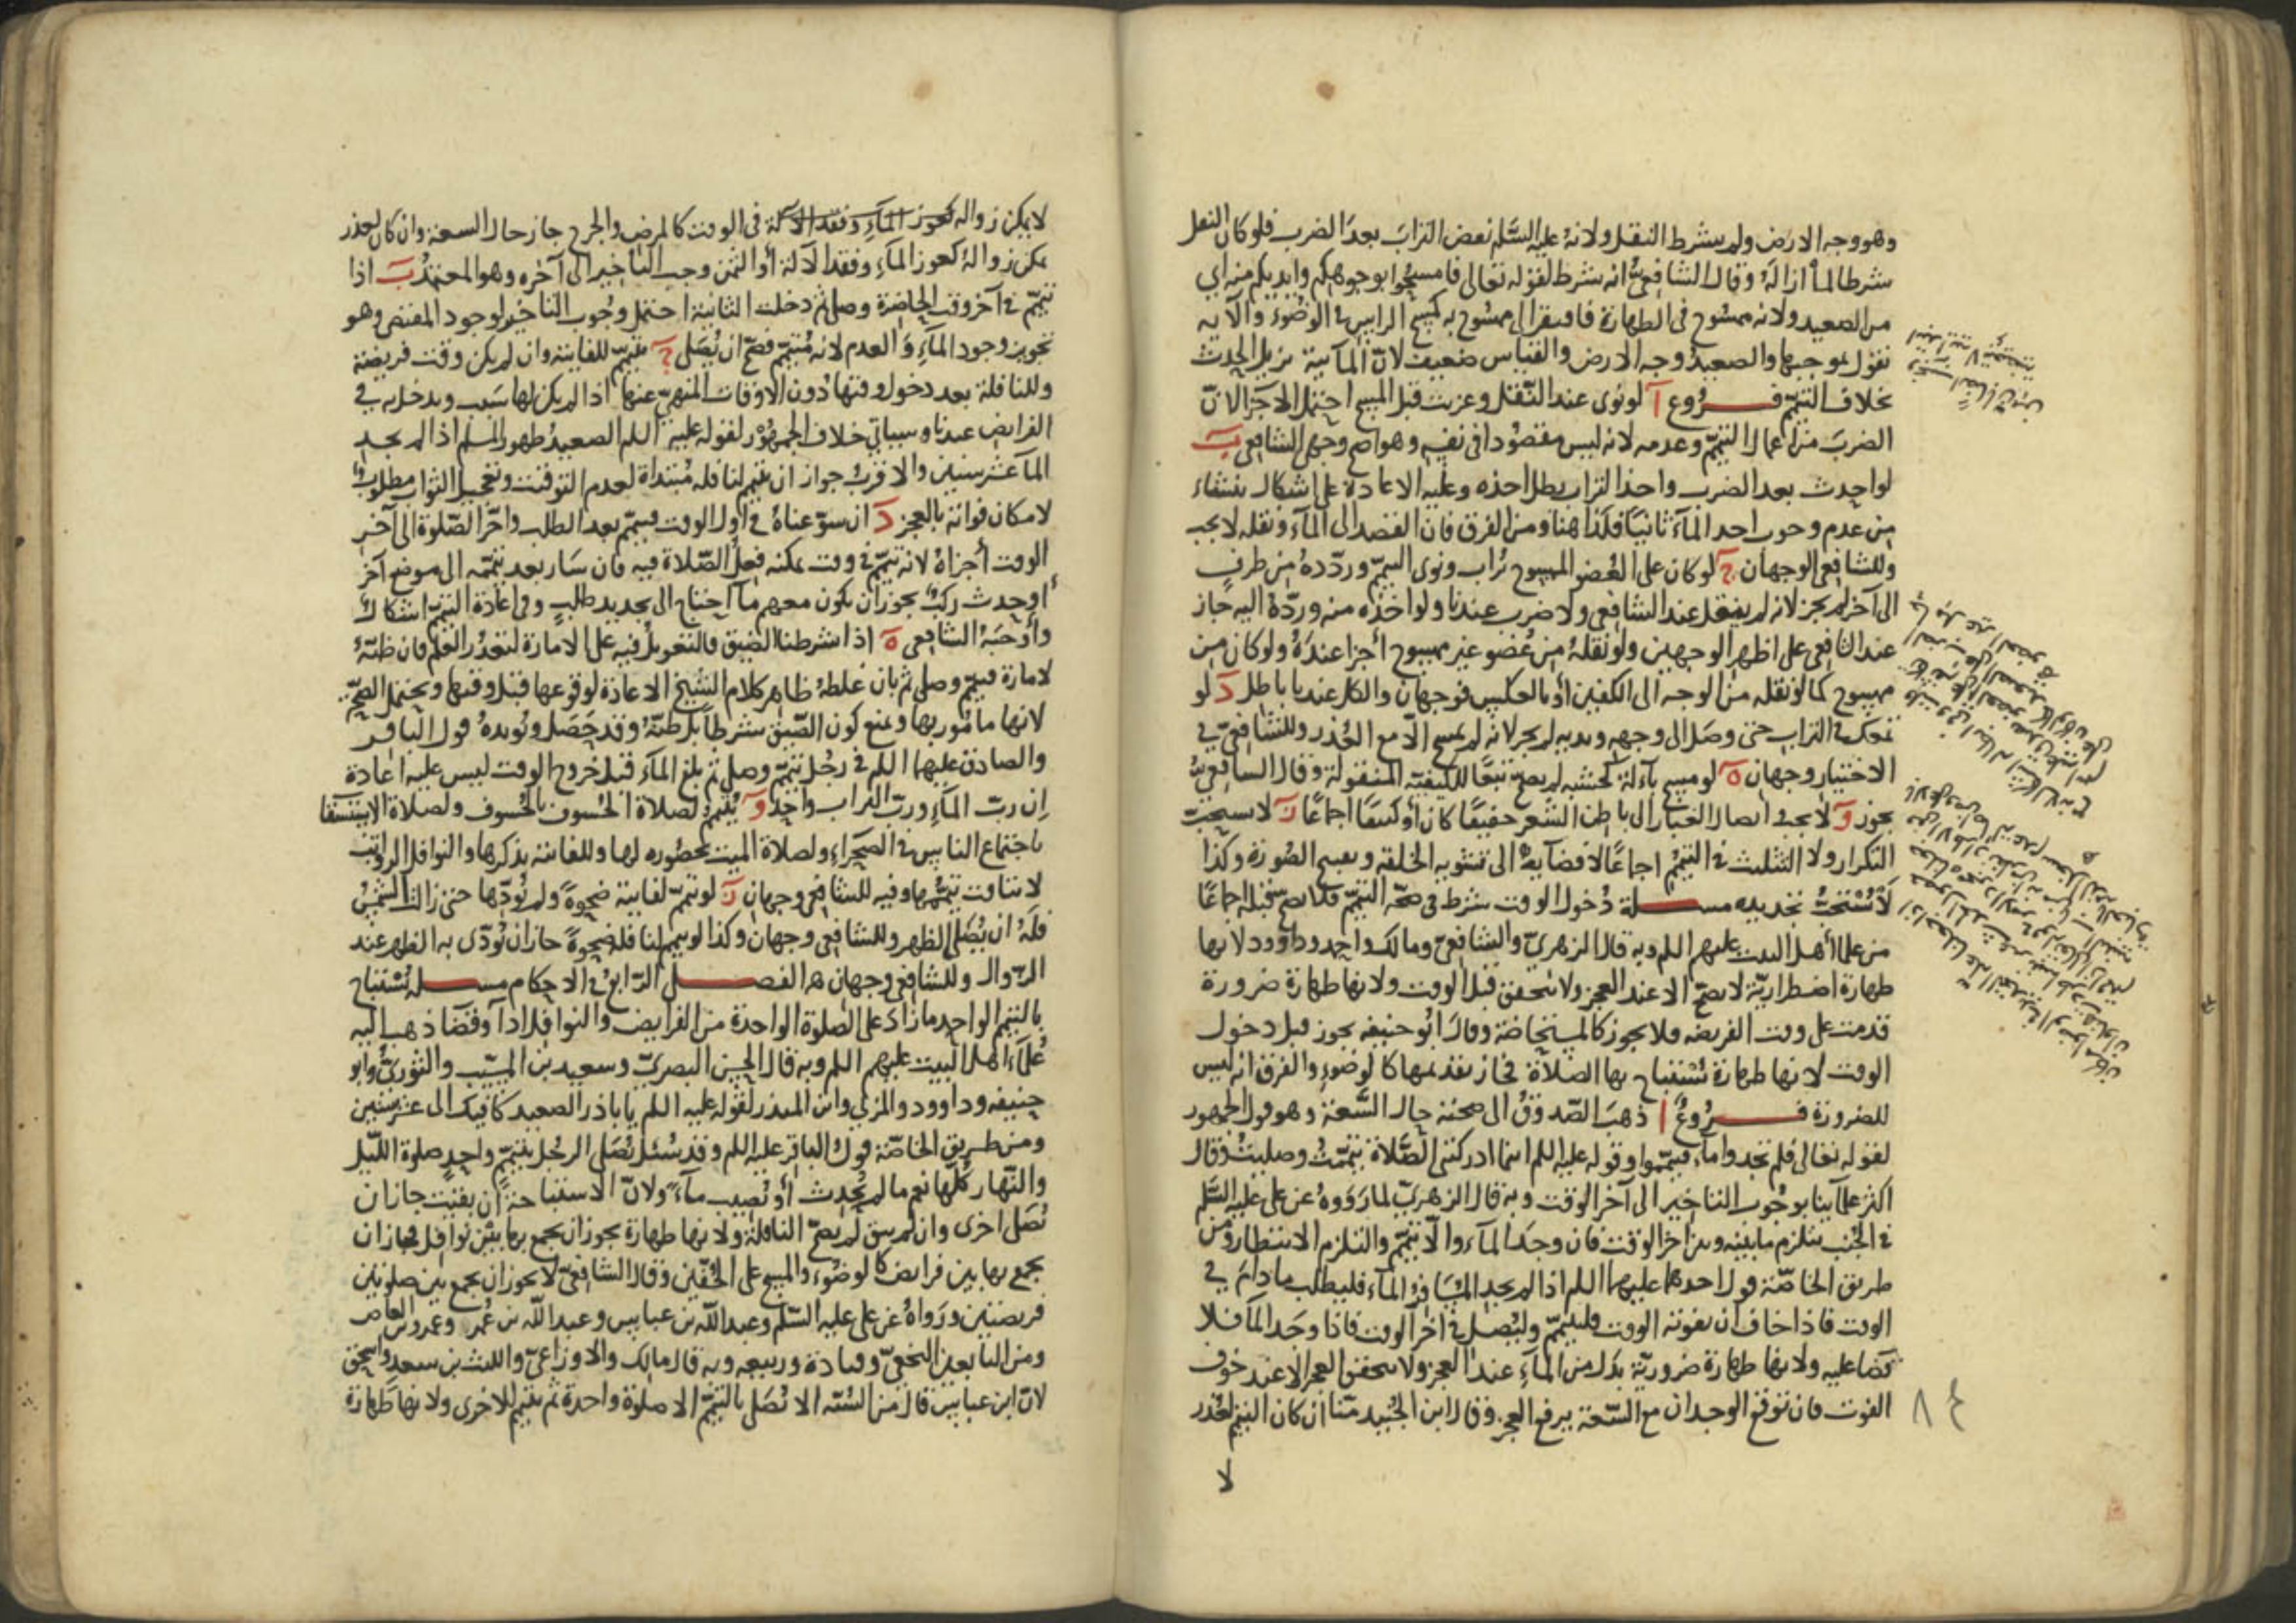 وهو وجه الارض ولم يشترط النقل ولانه عليه السلم نفض التراب بعد الضرب فلو كان النقل
شرطا لما ازاله وقال الشافعي انه شرط لقوله تعالى فامسحوا بوجوهكم وايديكم منه اي
من الصعيد ولانه ممسوح في الطهارة فافتقر الى ممسوح به كمسح الراس في الوضوء والآية
نقول بموجبها والصعيد وجه الارض والقياس ضعيف لان المائية تزيل الحدث
بخلاف التيمم فروع آ لو نوى عند النقل وعزبت قبل المسح احتمل الاجزا لان
الضرب من اعمال التيمم وعدمه لانه ليس مقصودا في نفسه وهو اصح وجهي الشافعي ب
لو احدث بعد الضرب واخذ التراب بطل اخذه وعليه الاعادة على اشكال ينشاء
من عدم وجوب اخذ الماء ثانيا فكذا هنا ومن الفرق فان القصد الى الماء ونقله لا يجب
وللشافعي الوجهان ج لو كان على العضو الممسوح تراب ونوى التيمم وردده من طرف
الى آخر لم يجز لانه لم ينقل عند الشافعي ولا ضرب عندنا ولو اخذه منه ورده اليه جاز
عند الشافعي على اظهر الوجهين ولو نقله من عضو غير ممسوح أجزا عنده ولو كان من
ممسوح كما لو نقله من الوجه الى الكفين أو بالعكس فوجهان والكل عندنا باطل د لو
تمعك في التراب حتى وصل الى وجهه ويديه لم يجز لانه لم يمسح الا مع العذر وللشافعي في
الاختيار وجهان ه لو مسح بآلة كخشبة لم يصح تبعا للكيفية المنقولة وقال الشافعي
يجوز و لا يجب ايصال الغبار الى باطن الشعر خفيفا كان أو كثيفا اجماعا ز لا يستحب
التكرار ولا التثليث في التيمم اجماعا لافضائه الى تشويه الخلقة وتقبيح الصورة وكذا
لا يستحب تجديده مسلة دخول الوقت شرط في صحة التيمم فلا يصح قبله اجماعا
من علما أهل البيت عليهم اللم وبه قال الزهري والشافعي ومالك واحمد وداوود لانها
طهارة اضطرارية لا تصح الا عند العجز ولا يتحقق قبل الوقت ولانها طهارة ضرورة
قدمت على وقت الفريضة فلا يجوز كالمستحاضة وقال ابو حنيفه يجوز قبل دخول
الوقت لانها طهارة تستباح بها الصلاة فجاز تقديمها كالوضوء والفرق انه ليس
للضرورة فروع آ ذهب الصدوق الى صحته حال السعة وهو قول الجمهور
لقوله تعالى فلم تجدوا ماء فتيمموا وقوله عليه اللم اينما ادركتني الصلاة تيممت وصليت وقال
اكثر علمآئنا بوجوب التاخير الى آخر الوقت وبه قال الزهري لما رووه عن علي عليه السلم
في الجنب يتلوم ما بينه وبين اخر الوقت فان وجد الماء والا تيمم والتلوم الانتظار ومن
طريق الخاصة قول احدهما عليهما اللم اذا لم يجد المسافر الماء فليطلب ما دام في
الوقت فاذا خاف ان يفوته الوقت فليتيمم وليصل في اخر الوقت فاذا وجد الما فلا
قضا عليه ولانها طهارة ضرورية بدل من الماء عند العجز ولا يتحقق العجز الا عند خوف
الفوت فان توقع الوجدان مع السعة يرفع العجز وقال ابن الجنيد منا ان كان التيمم لعذر
لا
لا يمكن زواله في الوقت كالمرض والجرح جاز حال السعة وان كان لعذر
يمكن زواله كعوز الماء وفقد الآلة أو الثمن وجب التاخير الى آخره وهو المعتمد ب اذا
تيمم في آخر وقت الحاضرة وصلى ثم دخلت الثانية احتمل وجوب التاخير لوجود المقتضي وهو
تجويز وجود الماء والعدم لانه متيمم فصح ان يصلي ج يتيمم للفائتة وان لم يكن وقت فريضة
وللنافلة بعد دخول وقتها دون الاوقات المنهي عنها اذا لم يكن لها سبب ويدخل به في
الفرايض عندنا وسياتي خلاف الجمهور لقوله عليه اللم الصعيد طهور المسلم اذا لم يجد
الما عشر سنين والاقرب جواز ان يتيمم لنافلة مبتداة لعدم التوقيت وتعجيل الثواب مطلوب
لامكان فواته بالعجز د ان سوغناه في اول الوقت فتيمم بعد الطلب واخر الصلوة الى آخر
الوقت أجزاه لانه تيمم في وقت يمكنه فعل الصلاة فيه فان سار بعد تيممه الى موضع آخر
أو حدث ركب يجوز ان يكون معهم ما احتاج الى تجديد طلب وفي اعادة التيمم اشكال
وأوجبه الشافعي ه اذا اشترطنا الضيق فالتعويل فيه على الامارة لتعذر العلم فان ظنه
لامارة فتيمم وصلى ثم بان غلطه ظاهر كلام الشيخ الاعادة لوقوعها قبل وقتها ويحتمل الصحة
لانها مامور بها ويمنع كون الضيق شرطا بل ظنه وقد حصل ويؤيده قول الباقر
والصادق عليهما اللم في رجل تيمم وصلى ثم بلغ الماء قبل خروج الوقت ليس عليه اعادة
ان رب الماء ورب التراب واحد و يتيمم لصلاة الخسوف بالخسوف ولصلاة الاستسقا
باجتماع الناس في الصحراء ولصلاة الميت بحضوره لها وللفائتة بذكرها والنوافل الرواتب
لا يتاقت تيممها وفيه للشافعي وجهان ز لو تيمم لفايتة ضحوة ولم يؤدها حتى زالت الشمس
فله ان يصلي الظهر وللشافعي وجهان وكذا لو تيمم لنافلة ضحوة جاز ان يؤدى به الظهر عند
الزوال وللشافعي وجهان الفصل الرابع في الاحكام مسلة يستباح
بالتيمم الواحد ما زاد على الصلوة الواحدة من الفرايض والنوافل ادآ وقضآ ذهب اليه
علماء اهل البيت عليهم اللم وبه قال الحسن البصري وسعيد بن المسيب والثوري وابو
حنيفه وداوود والمزني وابن المنذر لقوله عليه اللم يا باذر الصعيد كافيك الى عشر سنين
ومن طريق الخاصة قول الباقر عليه اللم وقد سئل يصلي الرجل بتيمم واحد صلوة الليل
والنهار كلها نعم ما لم يحدث أو يصيب مآء ولان الاستباحة ان بقيت جاز ان
يصلي اخرى وان لم يبق لم يصح النافلة ولانها طهارة يجوز ان يجمع بها بين نوافل فجاز ان
يجمع بها بين فرايض كالوضوء والمسح على الخفين وقال الشافعي لا يجوز ان يجمع بين صلوتين
فريضتين ورواه عن علي عليه السلم وعبد الله بن عباس وعبد الله بن عمر وعمرو بن العاص
ومن التابعين النخعي وقتادة وربيعه وبه قال مالك والاوزاعي والليث بن سعد واسحق
لان ابن عباس قال من السنة الا تصلي بالتيمم الا صلوة واحدة ثم يتيمم للاخرى ولانها طهارة